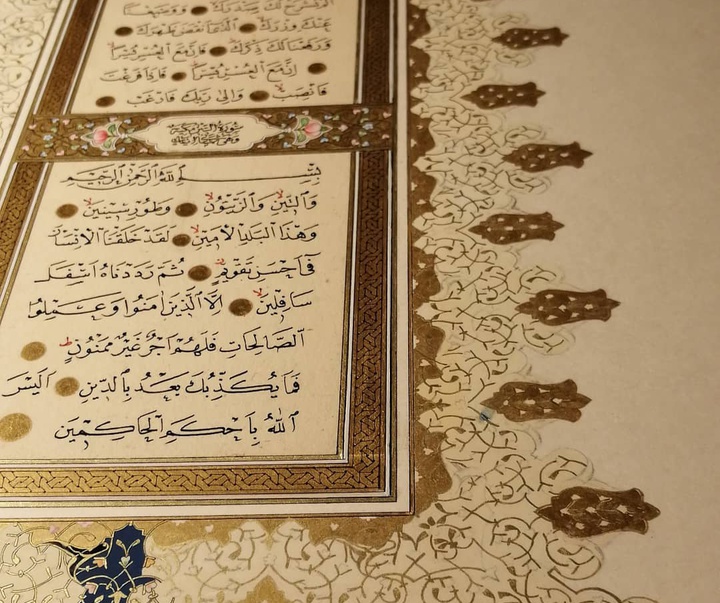 الم نشرح لك صدرك ووضعنا
عنك وزرك الذي انقض ظهرك
ورفعنا لك ذكرك فان مع العسر يسرا
ان مع العسر يسرا فاذا فرغت
فانصب والى ربك فارغب
سورة التين مكية
بسم الله الرحمن الرحيم
وَالتّينِ وَالزَّيْتُونِ وَطُورِ سِينِينَ
وَهٰذَا الْبَلَدِ الْاَمِينِ لَقَدْ خَلَقْنَا الْاِنْسَانَ
فٖى اَحْسَنِ تَقْوِيمٍ ثُمَّ رَدَدْنَاهُ اَسْفَلَ
سَافِلِينَ اِلَّا الَّذِينَ اٰمَنُوا وَعَمِلُوا
الصَّالِحَاتِ فَلَهُمْ اَجْرٌ غَيْرُ مَمْنُونٍ ط
فَمَا يُكَذِّبُكَ بَعْدُ بِالدِّينِ اَلَيْسَ
اللّٰهُ بِاَحْكَمِ الْحَاكِمِينَ